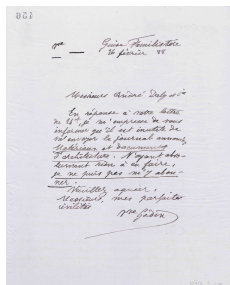 436
Guise Familistère
26 février 88
Messieurs André Daly et Cie
En réponse à votre lettre
de 24, je m'empresse de vous
informer qu'il est inutile de
m'envoyer le journal annoncé
Matériaux et documents
d'architecture. N'ayant abso-
lument rien à en faire,
je ne puis pas m'y abon-
ner.
Veuillez agréer,
Messieurs, mes parfaites
civilités
Vve Godin